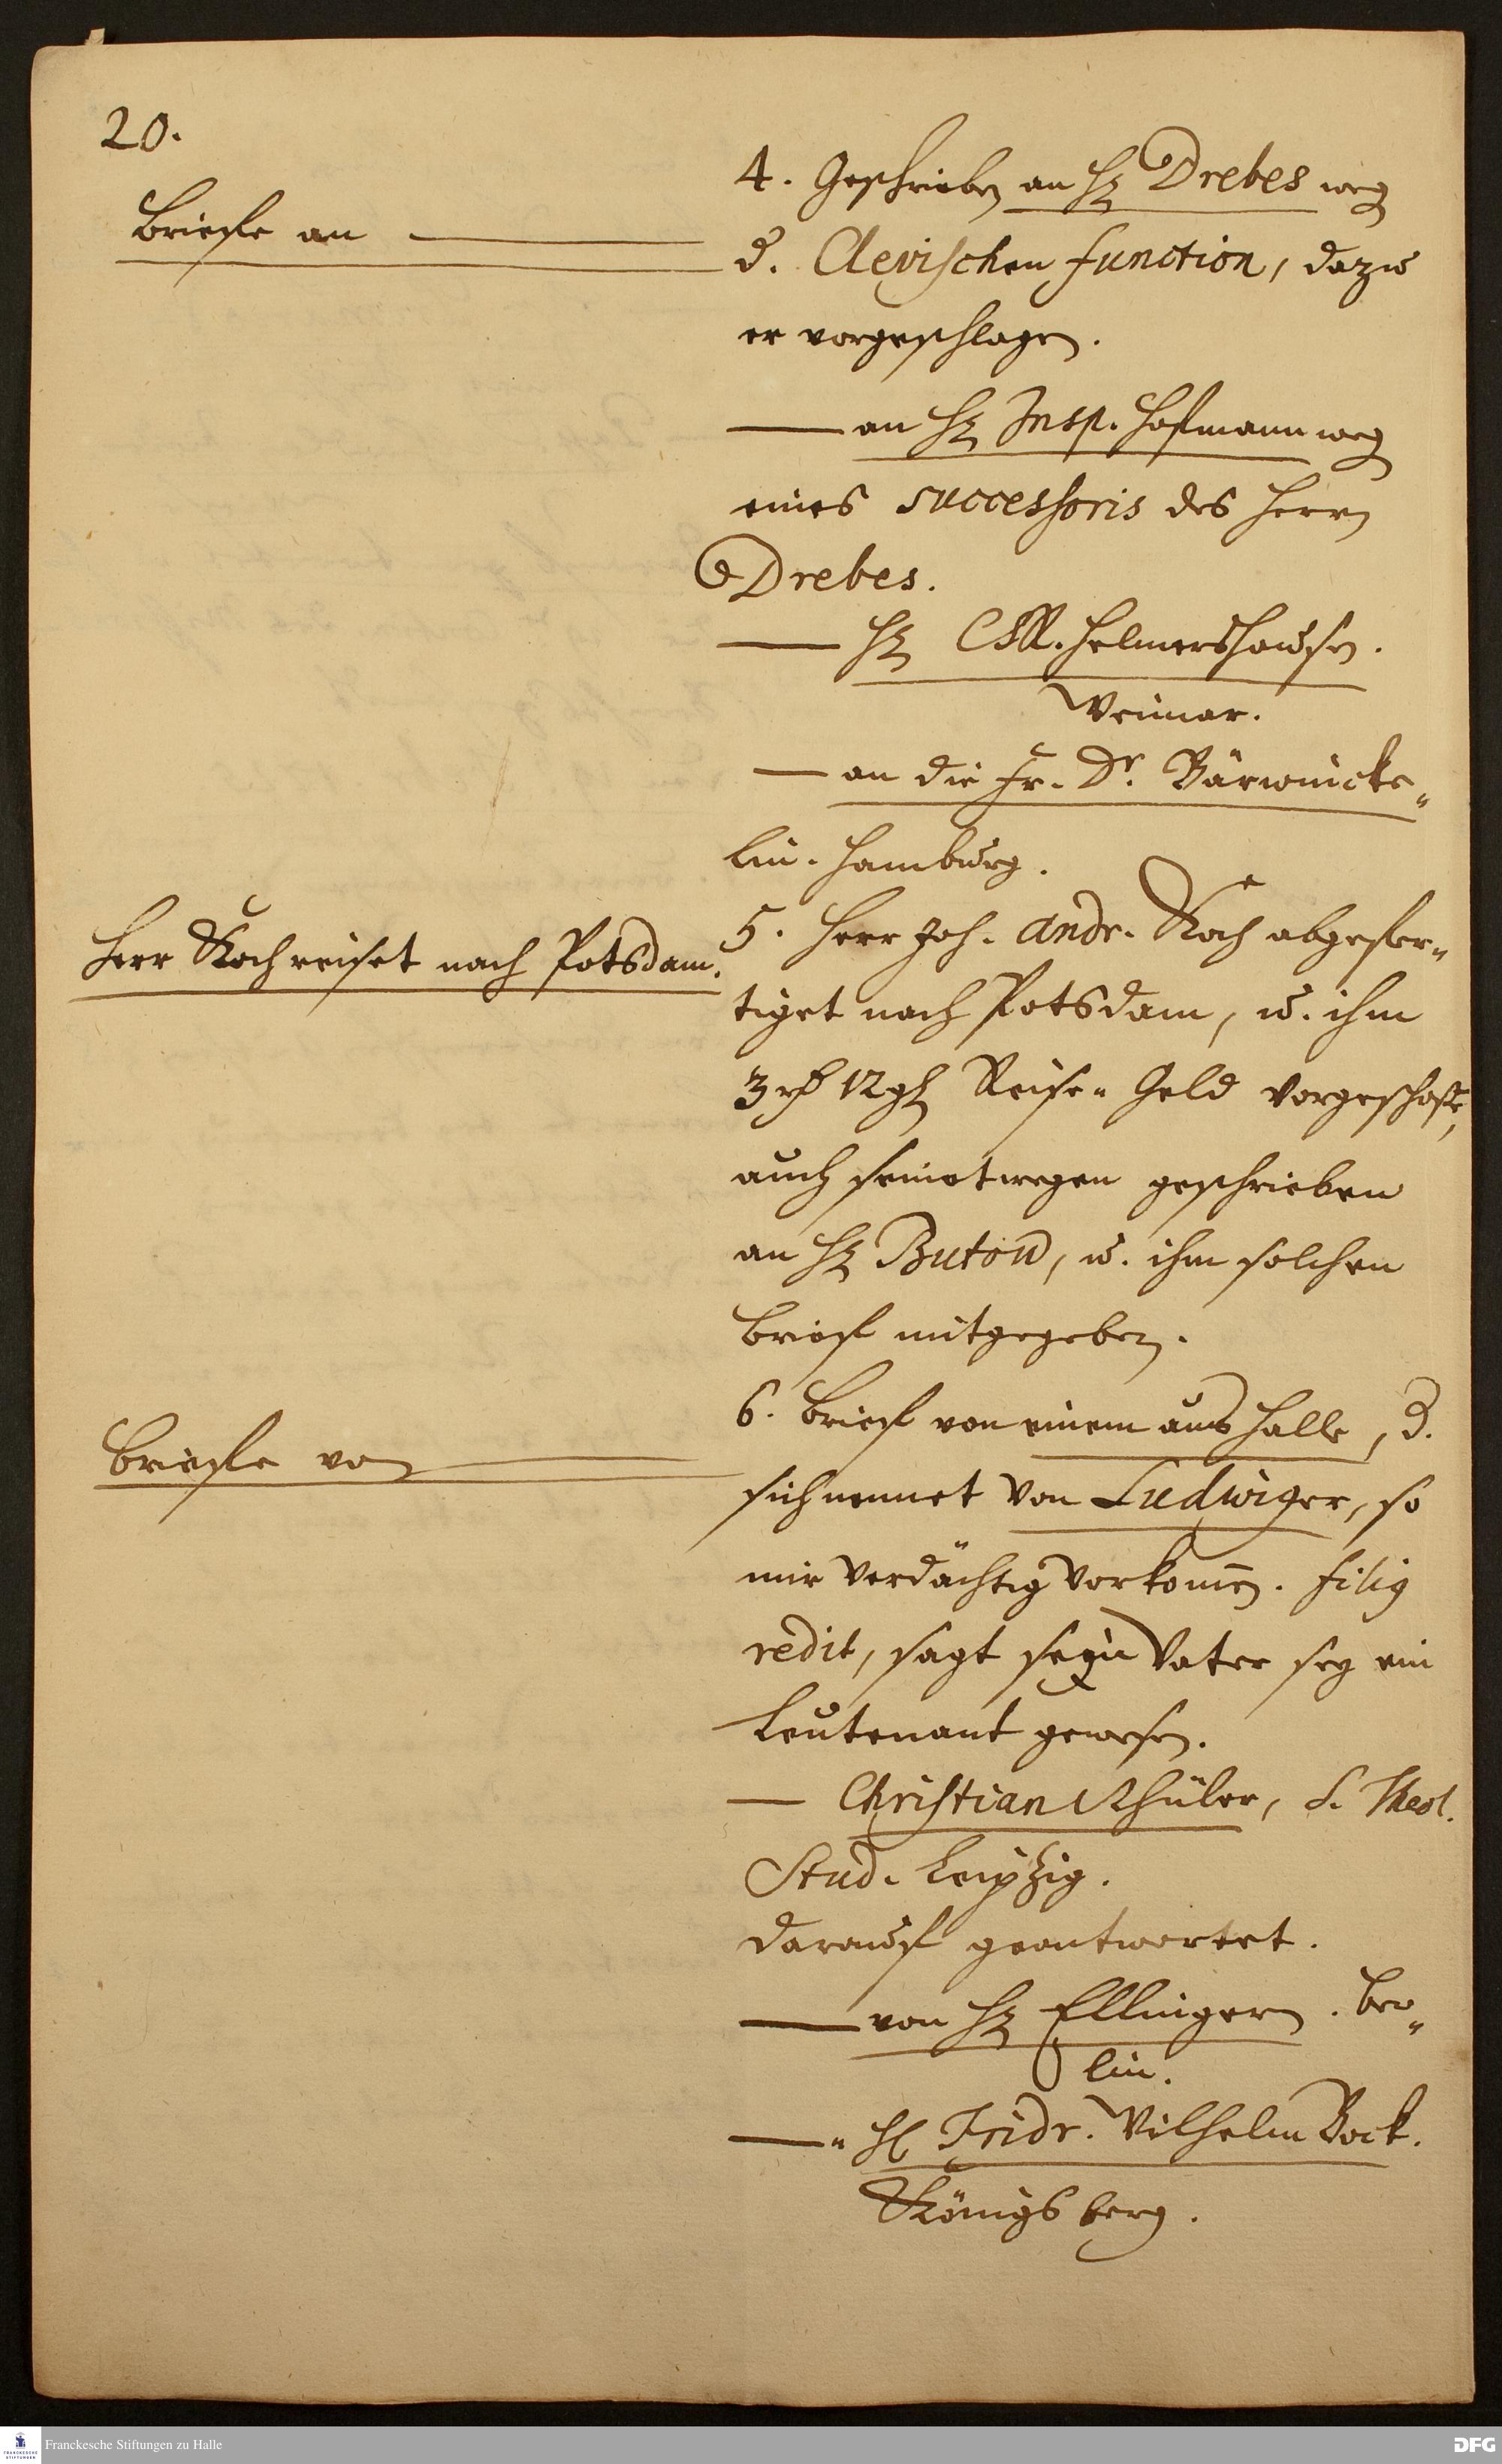 20.
Briefe an
4. Geschrieben an H. Drebes weg
d. Clevischen function, dazu
er vorgeschlagen.
an H. Insp. Hofmann weg
eines successoris des Herrn
Drebes.
H. CR. Helmershausen.
Weimar.
an die Fr. Dr. Bärwinicke„
lin. Hamburg.
Herr Koch reiset nach Potsdam.
5. Herr Joh. Andr. Koch abgefer„
tiget nach Potsdam, u. ihm
3 rh 12 gl Reise„ Geld vorgeschoße,
auch seinetwegen geschrieben
an H. Butow, u. ihm solchen
Brief mitgegeben.
Briefe von
6. Brief von einem aus Halle, d.
sich nennet von Ludwiger, so
mir verdächtig vorkomen.
redit, sagt seyn Vater sey ein
Leutenant gewesen.
Christian S. Theol.
Stud. Leipzig.
darauf geantwortet.
von H. Ellingern. Ber„
lin.
„ H. Fridr. Wilhelm Bock.
Königsberg.
Franckesche Stiftungen zu Halle
DFG